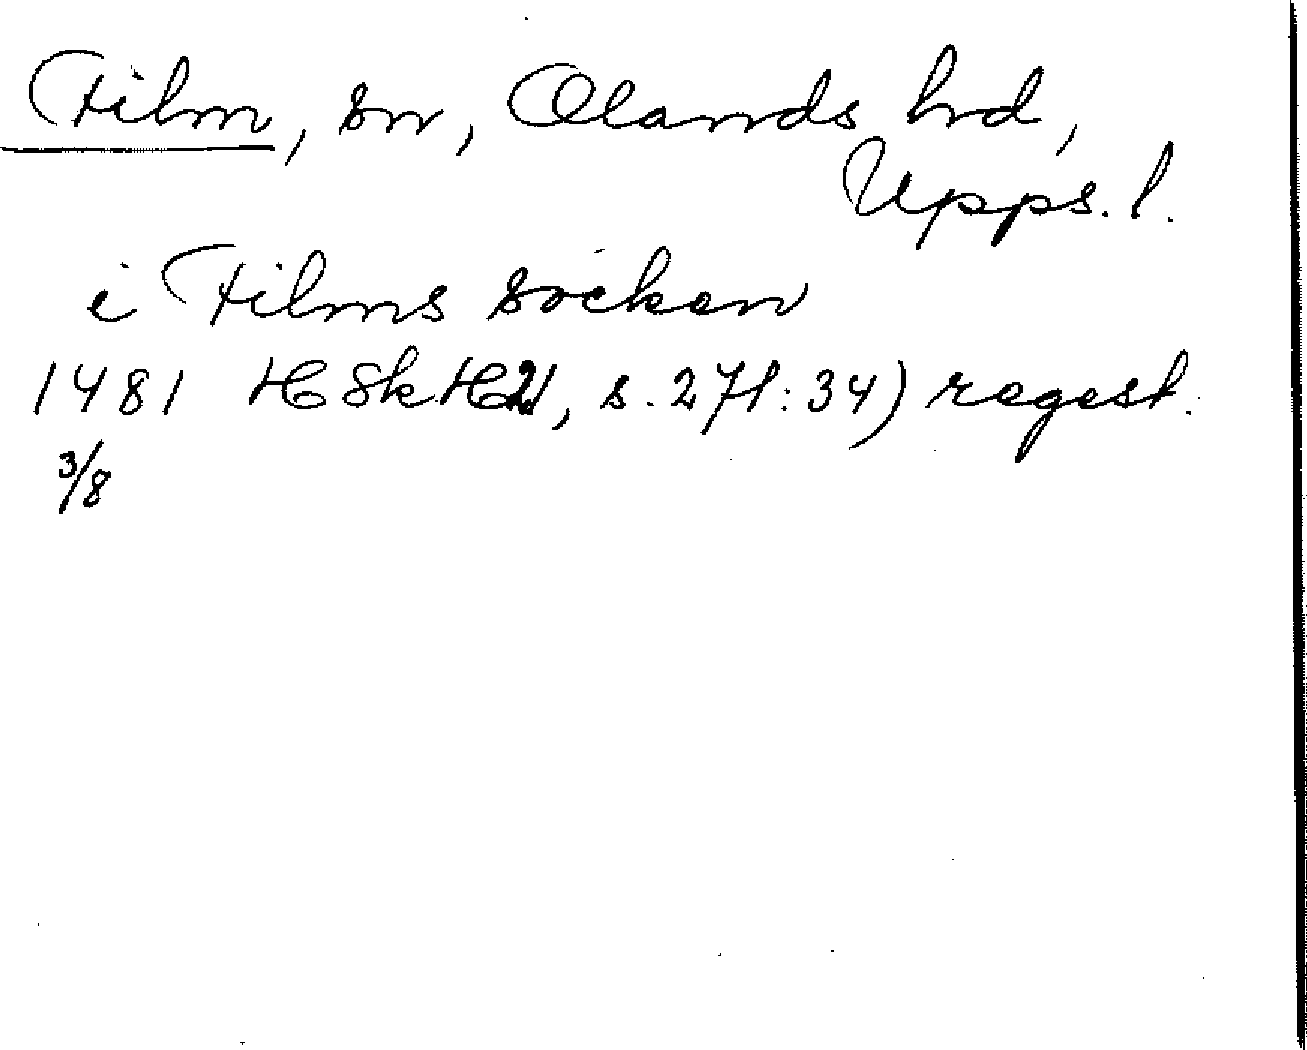 Film, sn, Olands hrd,
Upps. l.
i Films socken
1481 HSkH21, s. 271:34) regest.
3/8